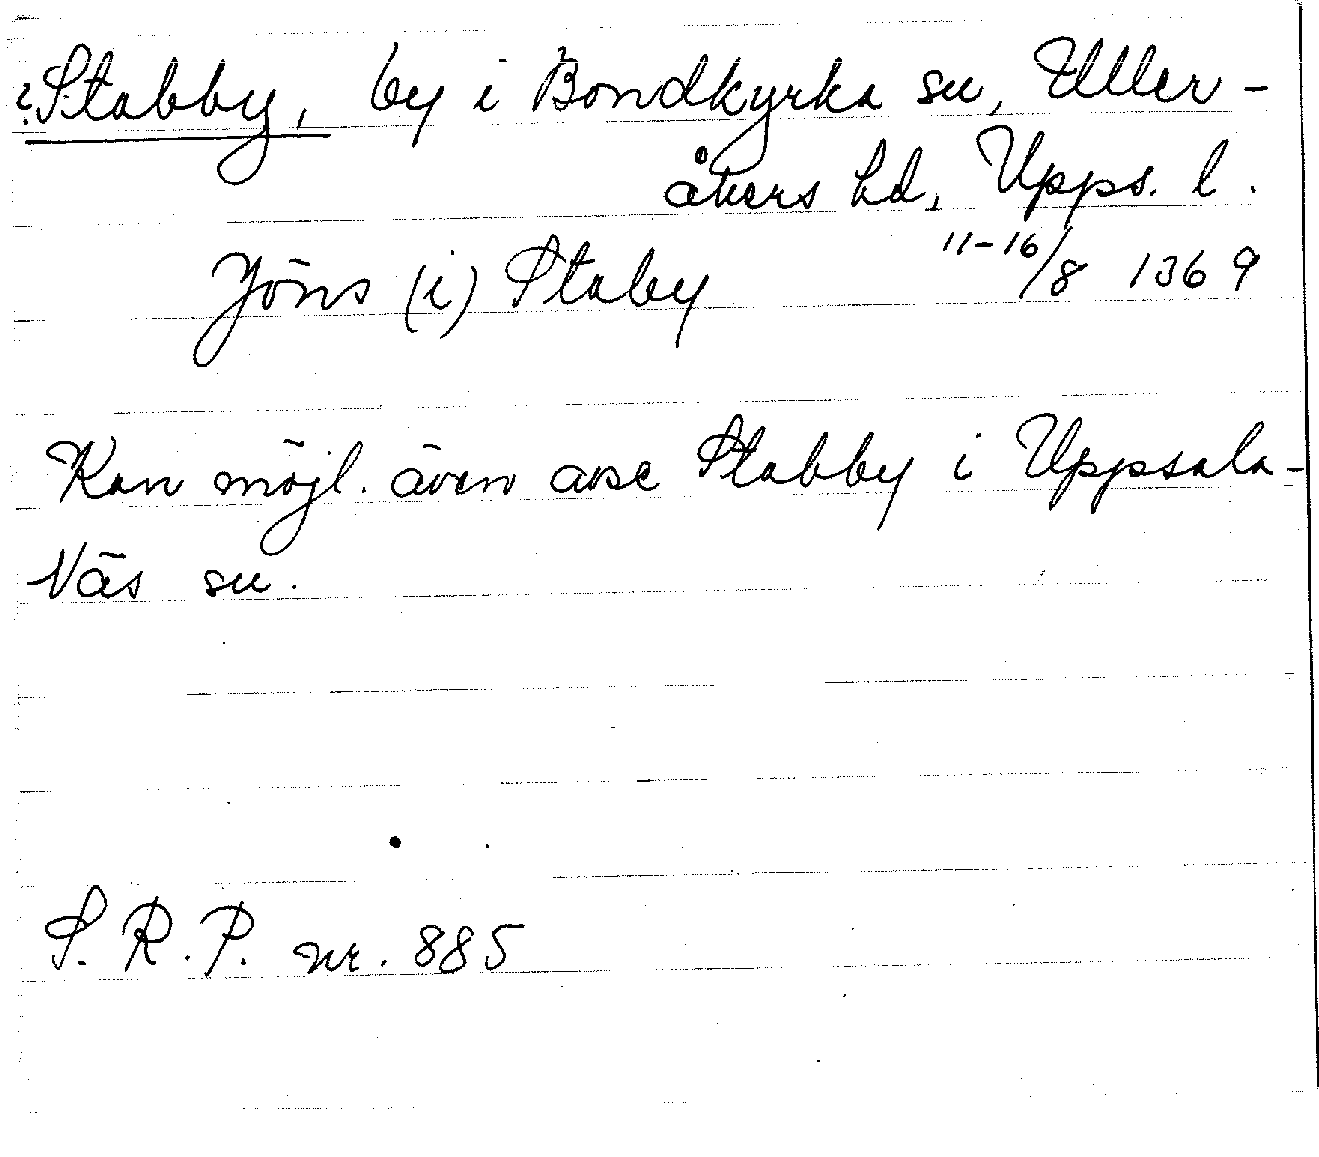 ?Stabby, by i Bondkyrka sn, Uller-
åkers hd, Upps. l.
Jöns (i) Staby 11-16/8 1369
Kan möjl. även avse Stabby i Uppsala-
Näs sn.
S.R.P. nr. 885